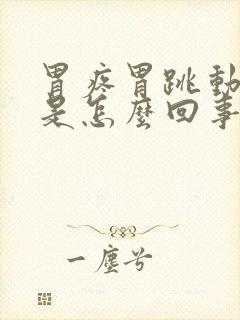 胃疼胃跳動
是怎麼回事
一塵兮